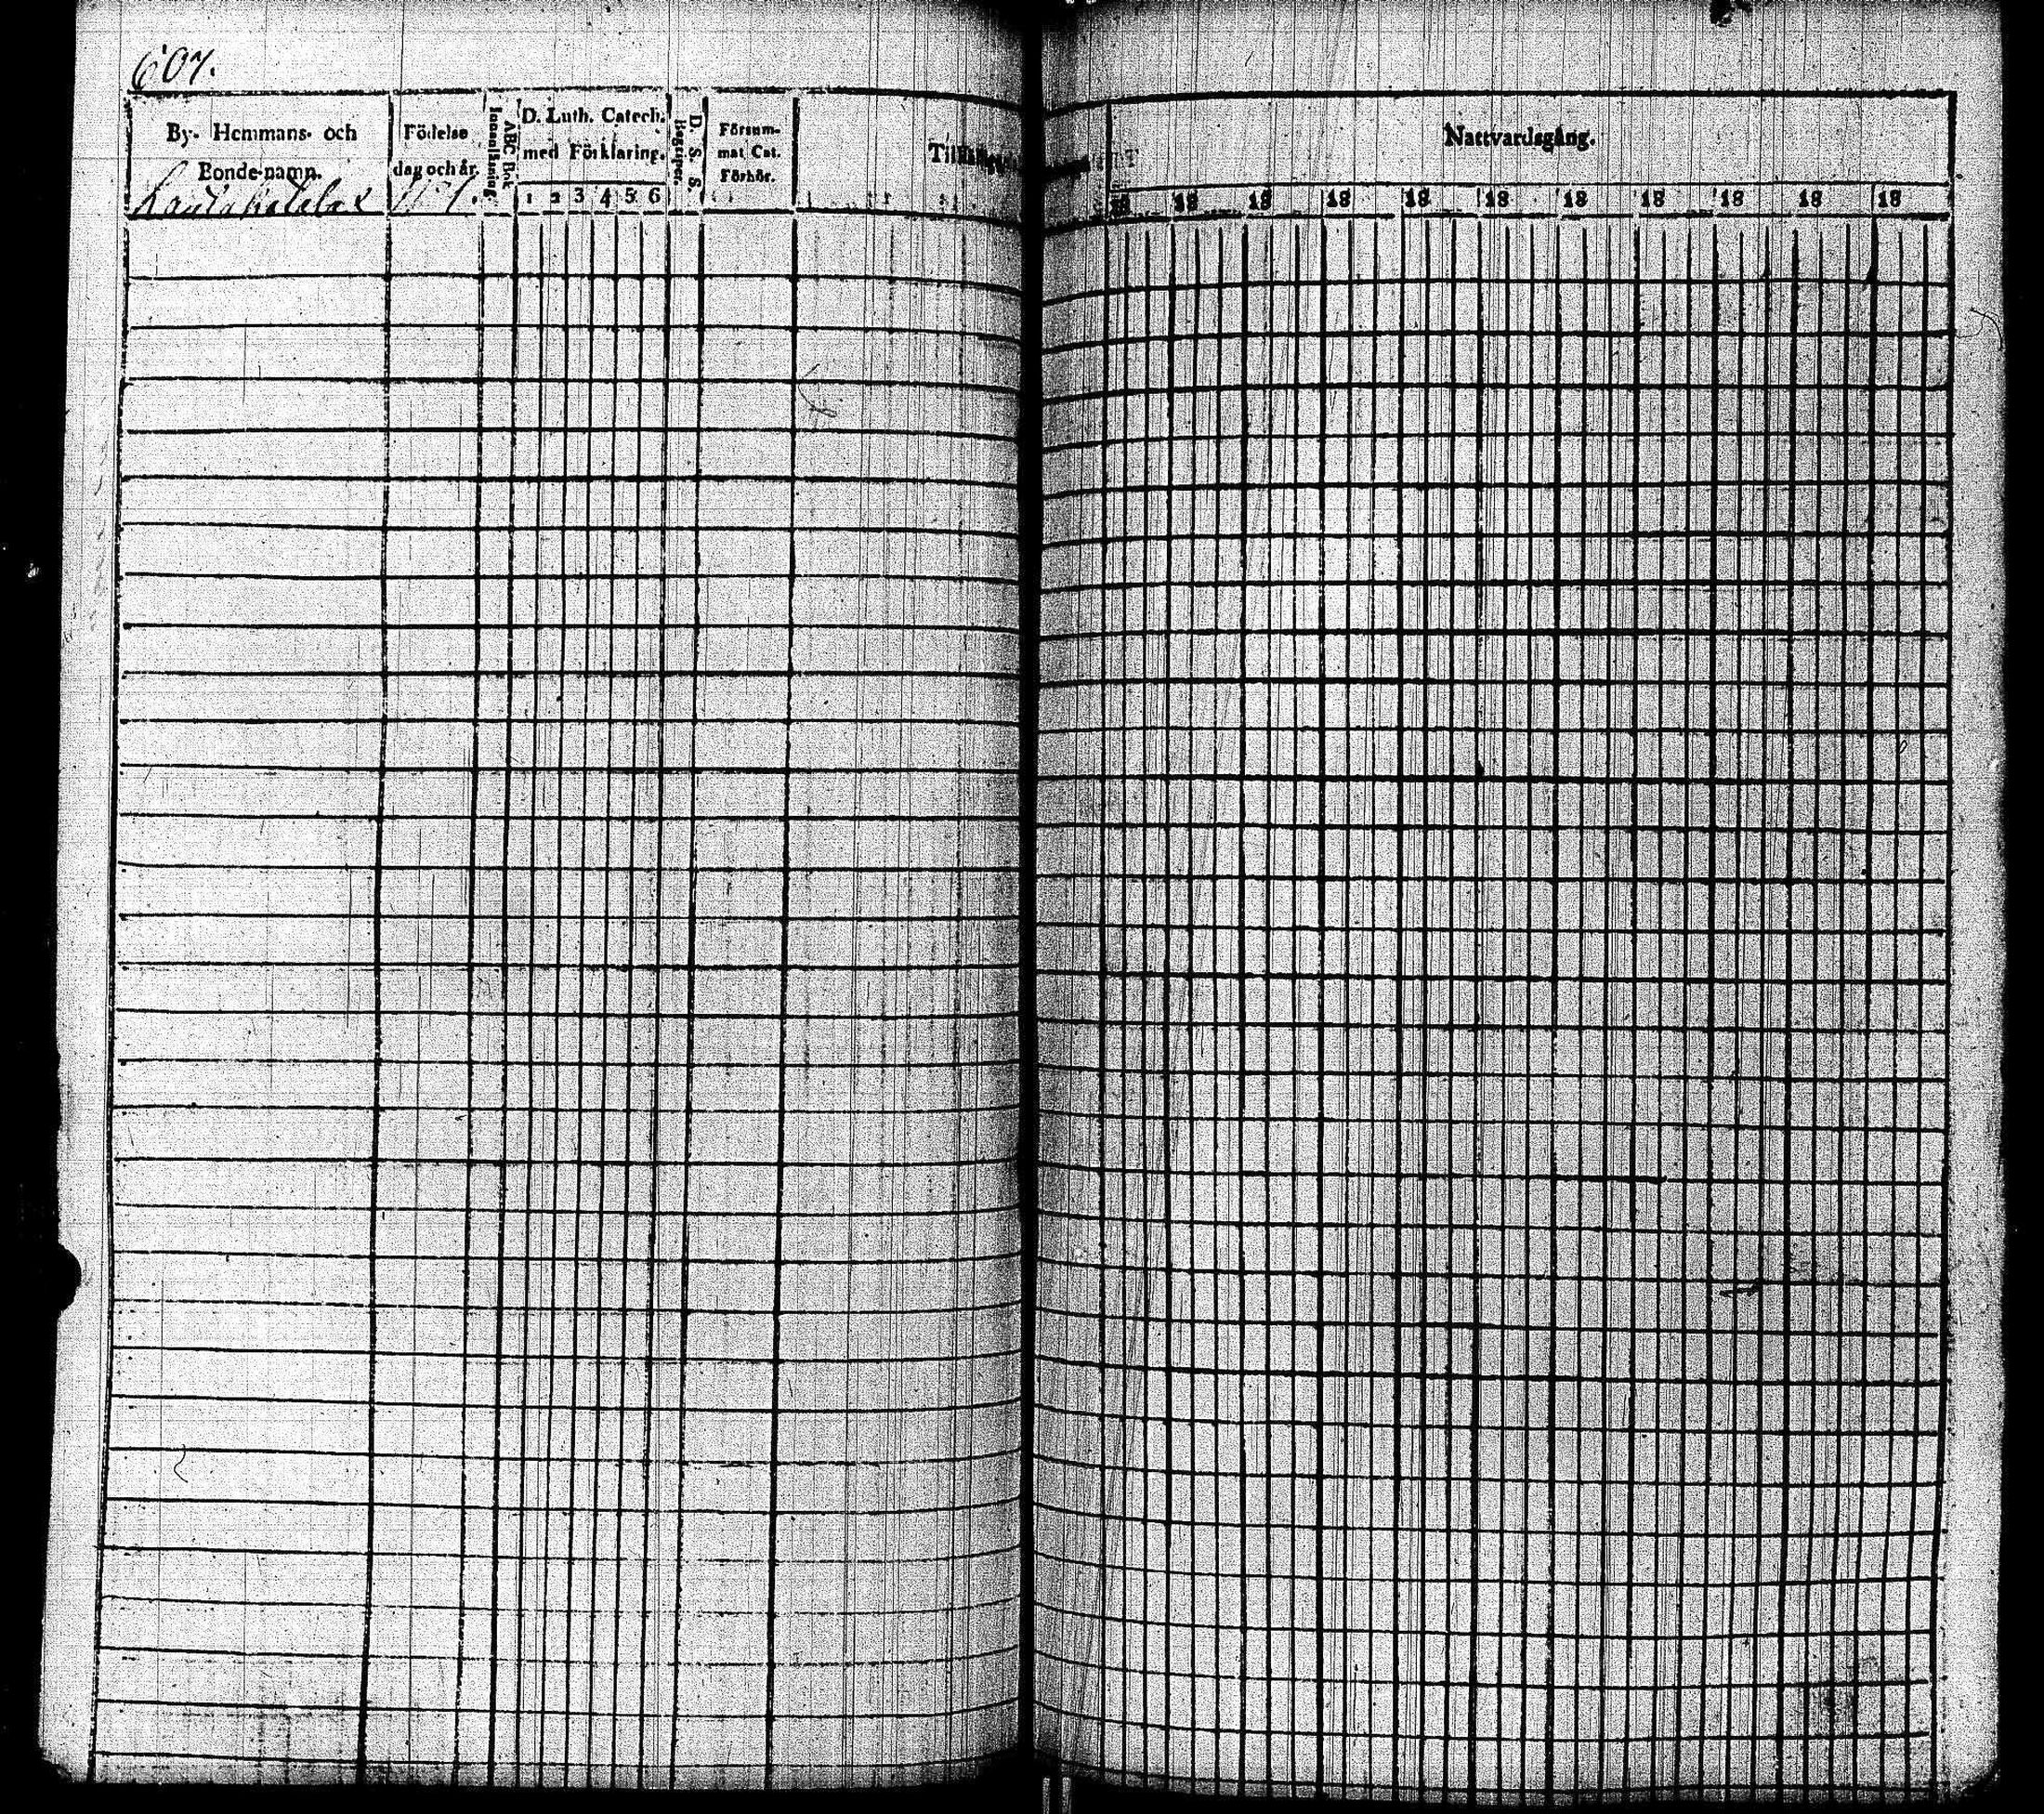 607.
By- Hemmans- och Bonde-namn.
Födelse dag och år.
Innanläsning.
ABC Bok
D. Luth. Catech. med Förklaring.
1 2 3 4 5 6
D. S. S.
Begreper.
Försummat Cat. Förhör.
Nattvardsgång.
18 18 18 18 18 18 18 18 18 18 18